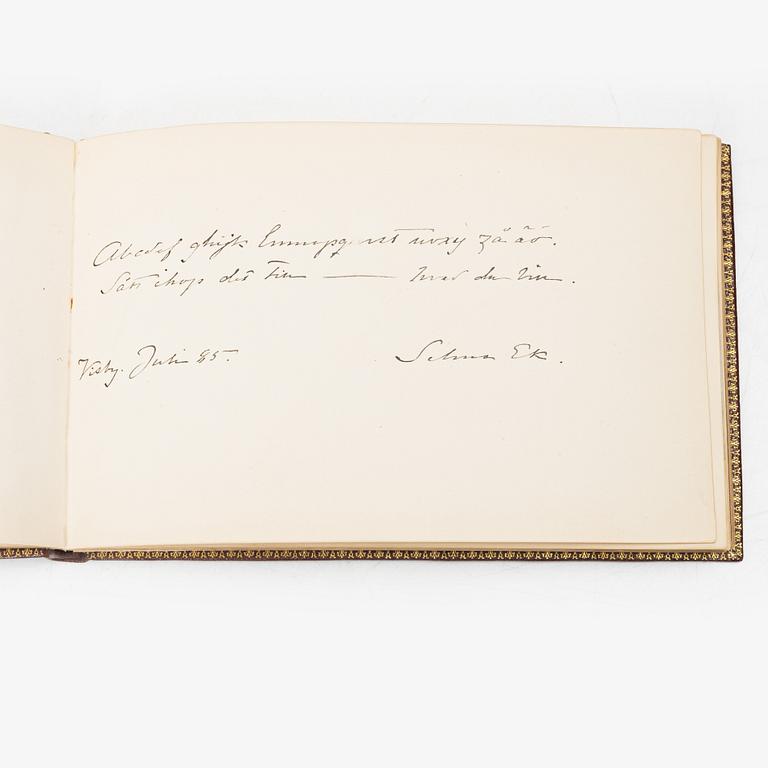 Abcdef ghijk lmnopqurst uvxy zåäö.
Sätt ihop det till — hvad du vill.
Visby. Juli 85.
Selma Ek.